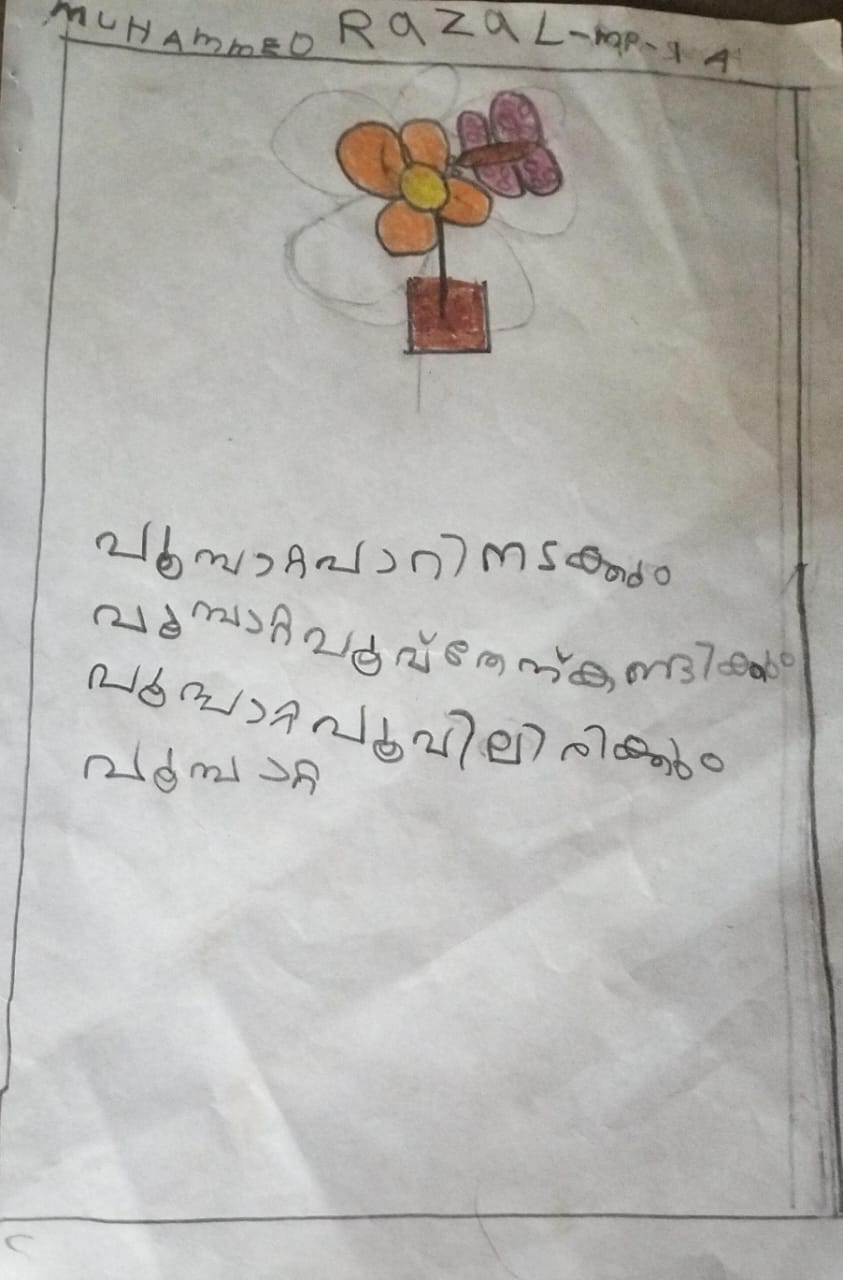 MUHAMMED RAZAL-MP-1 A
പൂമ്പാറ്റ പാറി നടക്കും
പൂമ്പാറ്റ പൂവ് തേന്
പൂമ്പാറ്റ പൂവിലിരിക്കും
പൂമ്പാറ്റ